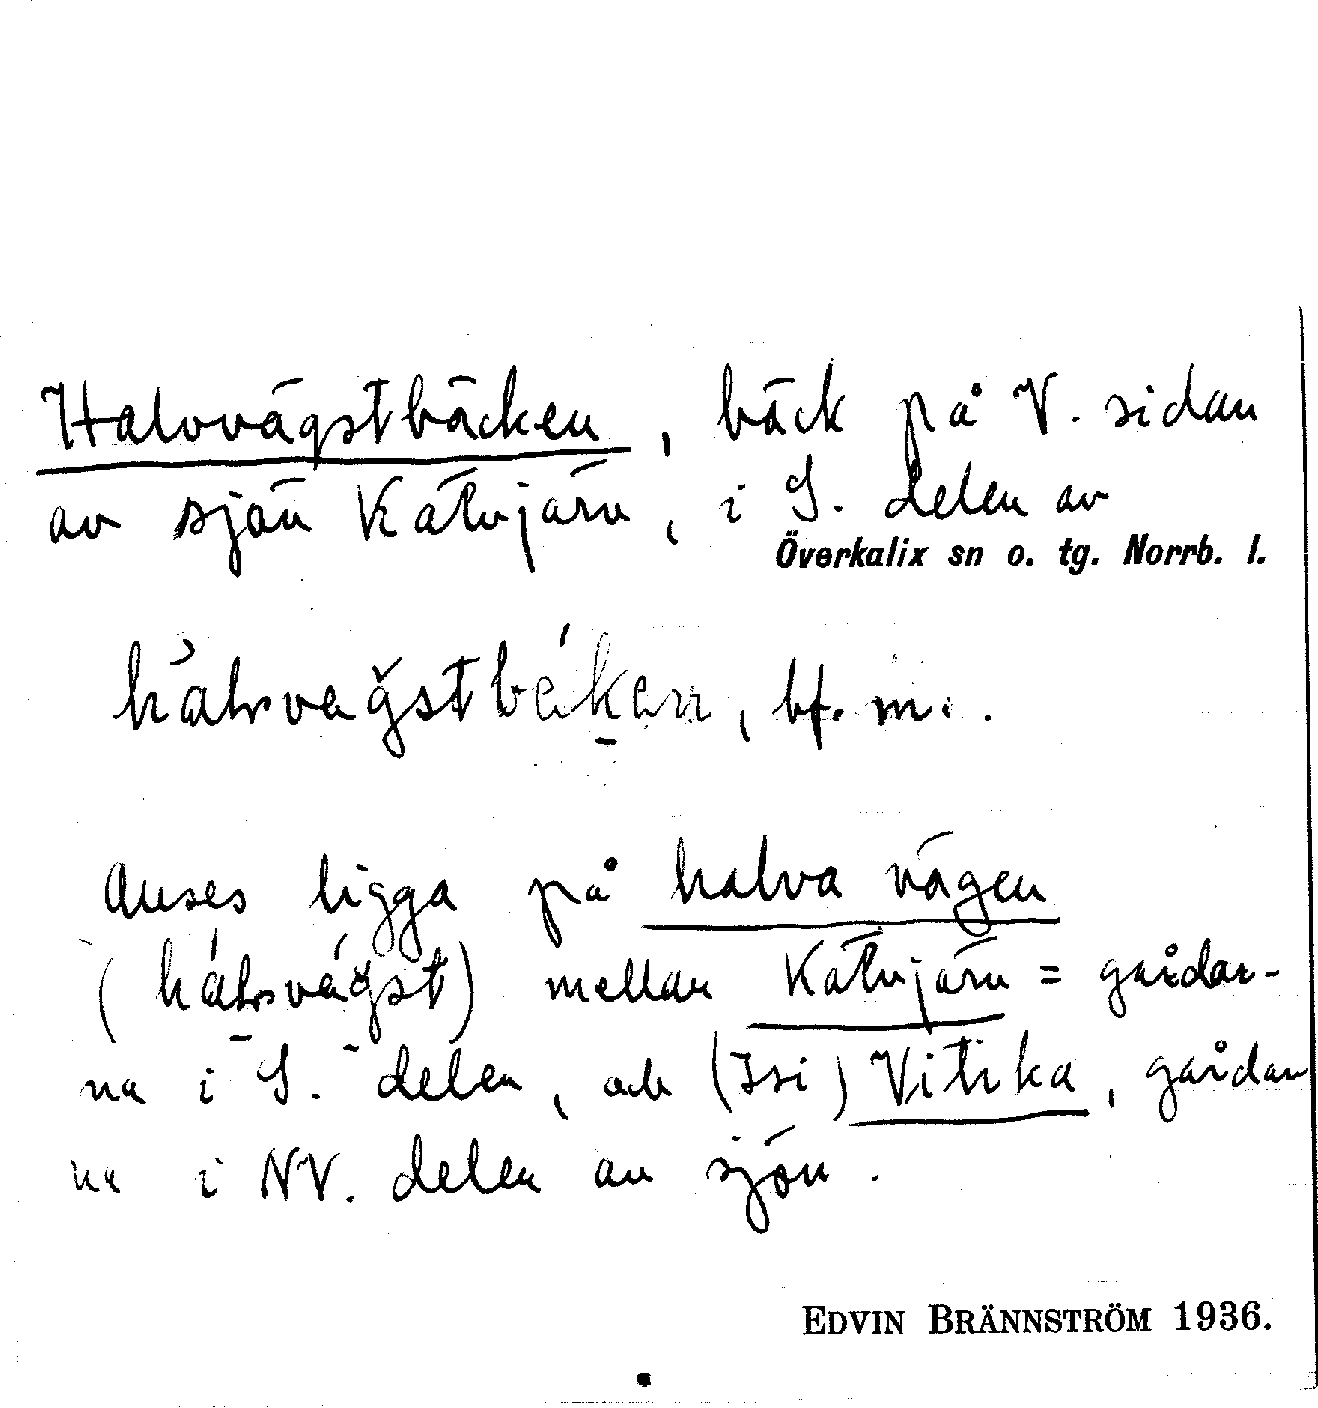 Halvvägstbäcken, bäck på V. sidan
av sjön Kätvjärv, i S. delen av
Överkalix sn o. tg. Norrb. l.
bf. m.
Anses ligga på halva vägen
mellan Kätvjärv = gårdar-
na i S. delen, och (Isi) Vitika, gårdar
na i NV. delen av sjön.
EDVIN BRÄNNSTRÖM 1936.